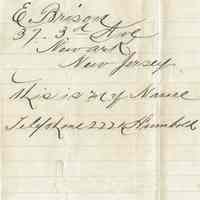 E Brison
37. 3rd Ave
Newark
New Jersey
this is my Name
Telfphone 2221 Humbold